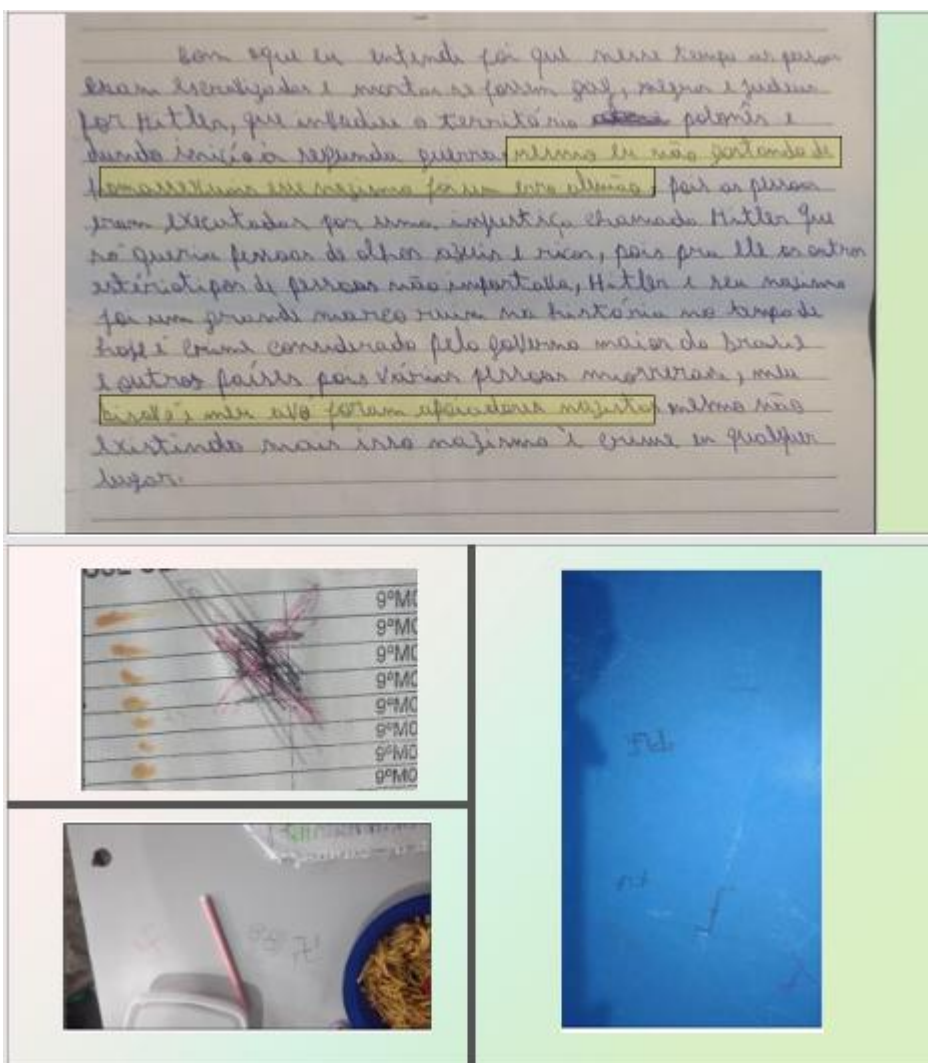 Bom oque eu entendi foi que nesse tempo as pessoas
eram escralizadas e mortas se fossem gay, negros e judeus
por Hitler, que invadiu o território polonês e
dando início a segunda guerra, mesmo eu não gostando de
homossexuais esse nazismo foi um erro alemão, pois as pessoas
eram executadas por uma injustiça chamada Hitler que
só queria pessoas de olhos azuis e ricos, pois pra ele os outros
estériotipos de pessoas não importava, Hitler e seu nazismo
foi um grande marco ruim na história no tempo de
hoje é crime considerado pelo governo maior do Brasil
e outros países pois várias pessoas morreram, meu
bisavô e meu avô foram apoiadores nazistas mesmo não
existindo mais isso nazismo é crime em qualquer
lugar.
9ºM
9ºM
9ºM
9ºM
9ºM
9ºM
9ºM